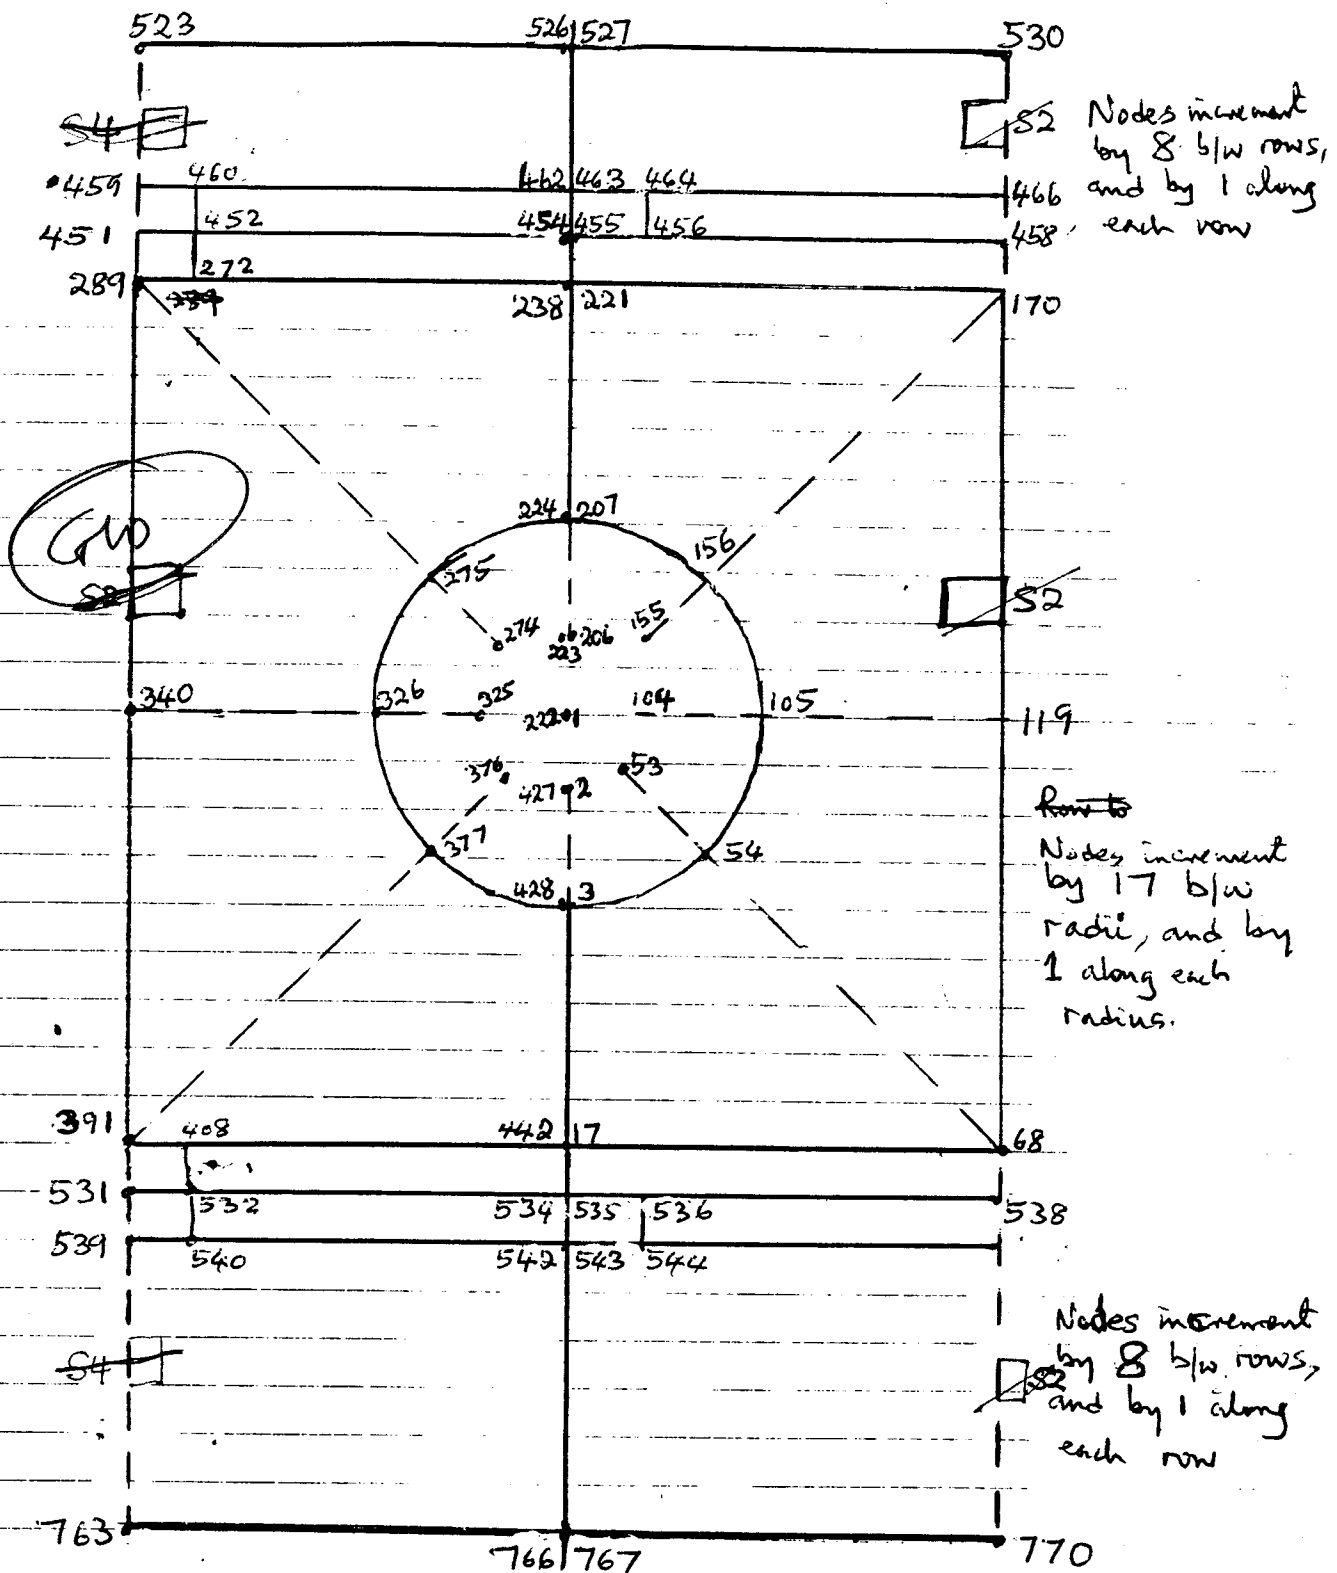 523 526 527 530
S4 S2
Nodes increment
by 8 b/w rows,
and by 1 along
each row
459 460 462 463 464 466
451 452 454 455 456 458
289 272 238 221 170
224 207
156
GW
275
S2 S2
274 223 206 155
340 326 325 222 1 104 105 119
376 427 2 53
377 54
428 3
Row to
Nodes increment
by 17 b/w
radii, and by
1 along each
radius.
391 408 442 17 68
531 532 534 535 536 538
539 540 542 543 544
S4 S2
Nodes increment
by 8 b/w rows,
and by 1 along
each row
763 766 767 770